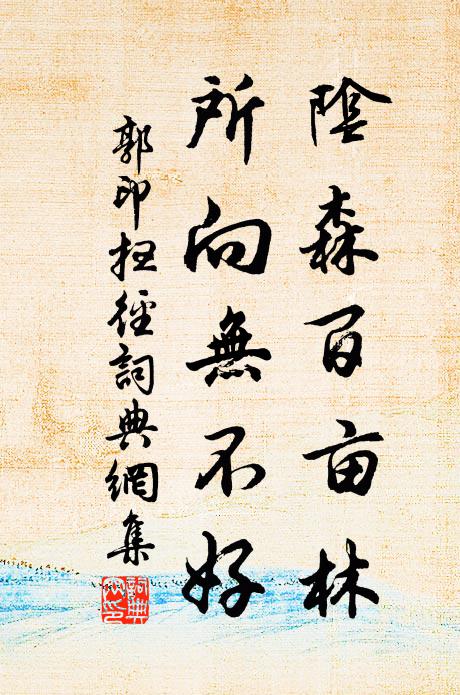 陰森百亩林
所向無不好
郭印抂徑詞典網集